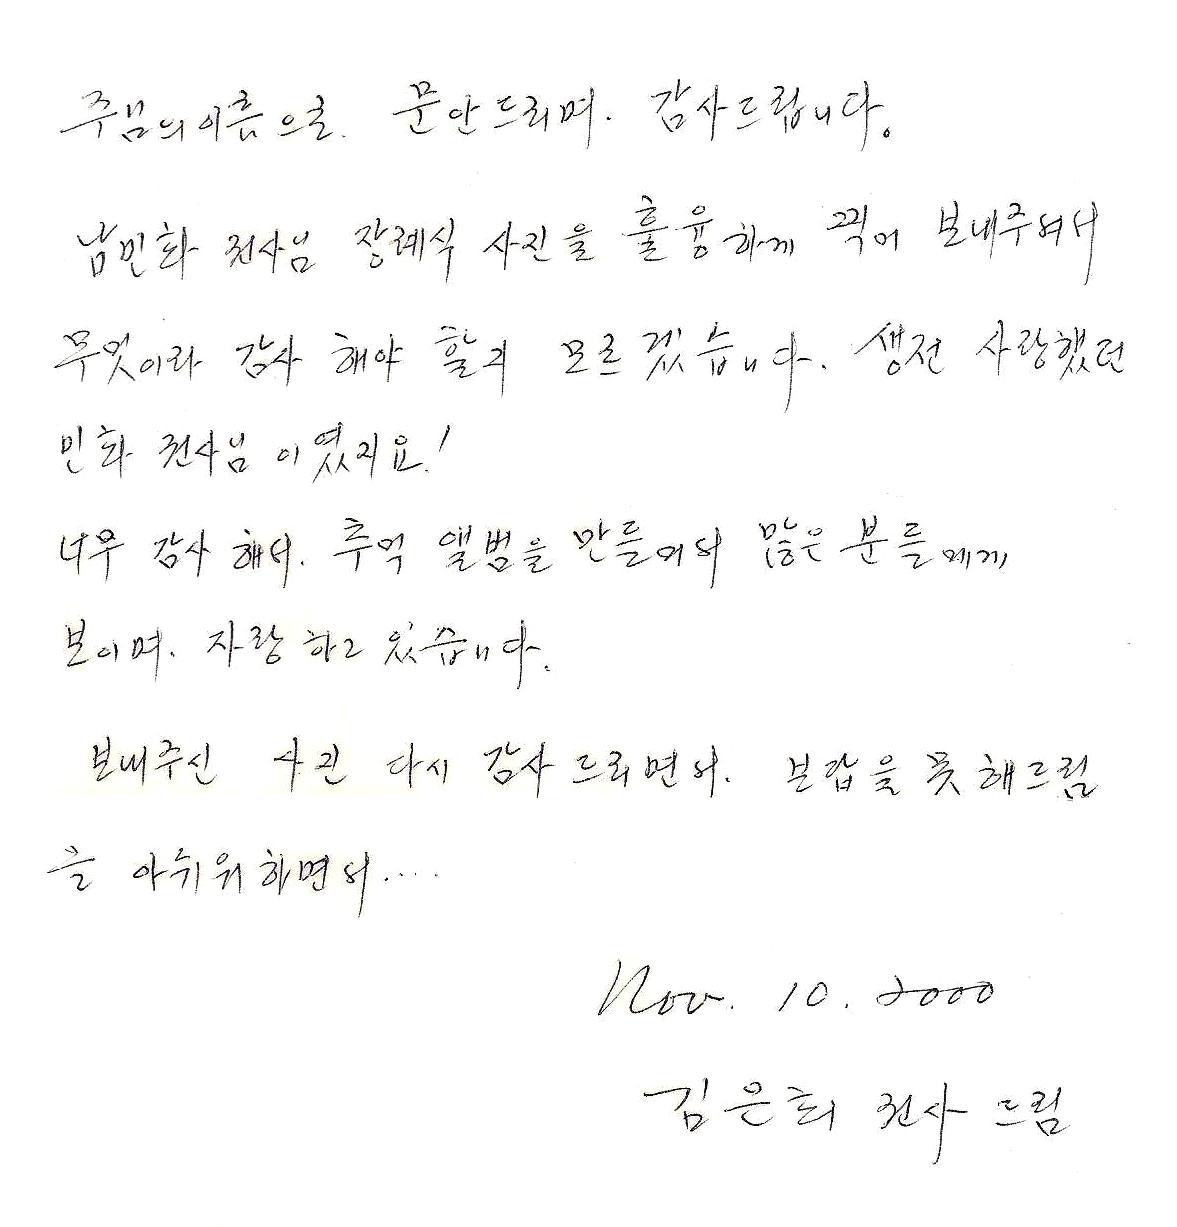 주님의 이름으로. 문안드리며. 감사드립니다.
남민화 전사님 장례식 사진을 훌륭하게 찍어 보내주셔서
무엇이라 감사 해야 할지 모르겠습니다. 생전 사랑했던
민화 전사님 이였지요!
너무 감사 해서. 추억 앨범을 만들어서 많은 분들에게
보이며. 자랑 하고 있습니다.
보내주신 사진 다시 감사 드리면서. 보답을 못해드림
을 아쉬워하면서....
Nov. 10. 2000
김은희 전사 드림